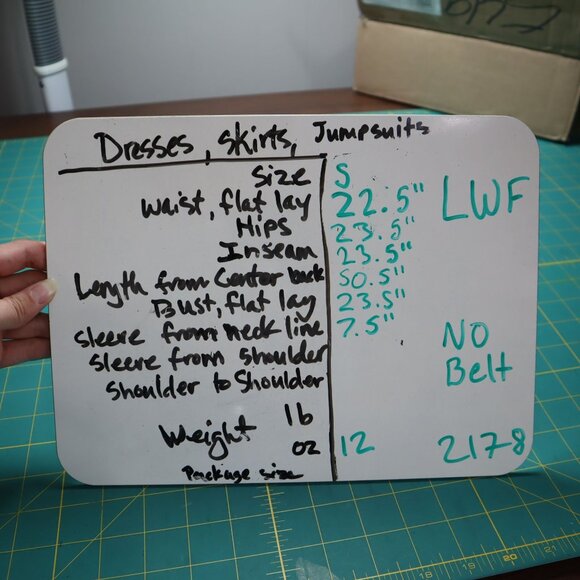 Dresses, skirts, Jumpsuits
Size S
waist, flat lay 22.5" LWF
Hips 23.5"
Inseam 23.5"
Length from Center back 50.5"
Bust, flat lay 23.5"
sleeve from neck line 7.5"
sleeve from shoulder NO
shoulder to Shoulder Belt
lb
Weight oz 12 2178
Package size
18 19 20 21